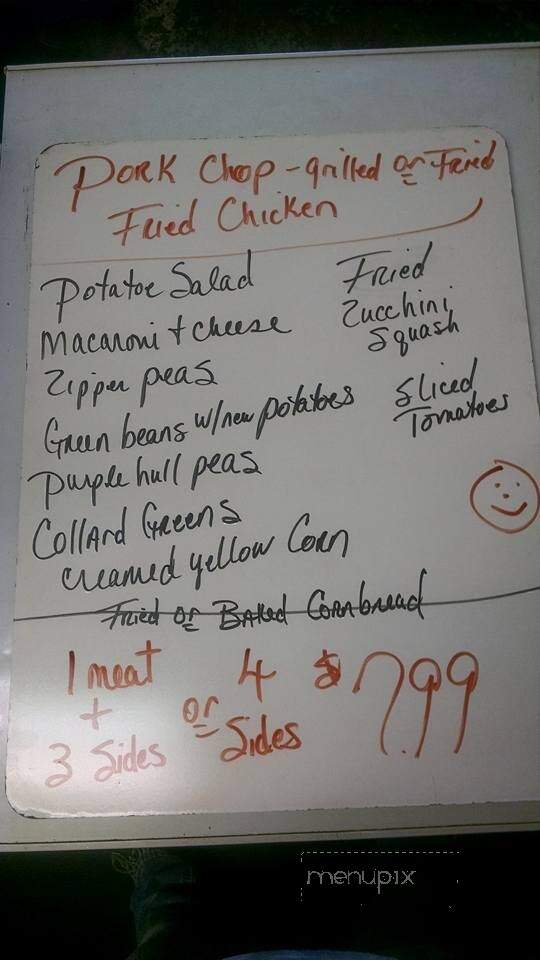 Pork Chop - grilled or Fried
Fried Chicken
Potatoe Salad
Macaroni + cheese
Zipper peas
Green beans w/new potatoes
Purple hull peas
Collard Greens
Creamed yellow Corn
Fried
Zucchini
Squash
Sliced
Tomatoes
Fried or Baked Cornbread
1 meat
+
3 Sides
or
4
Sides
$7.99
menupix